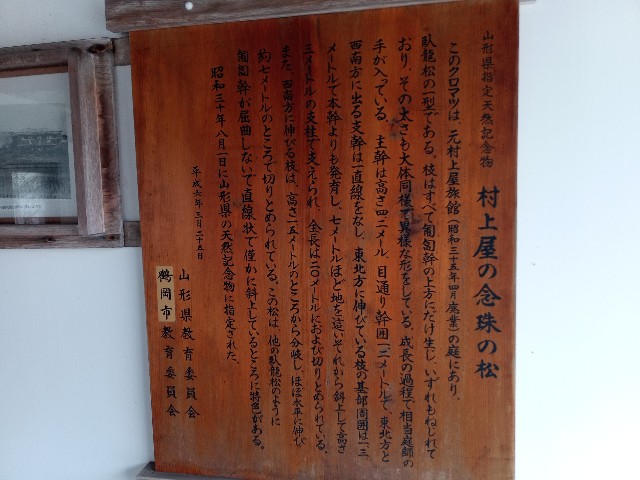 山形県指定天然記念物
村上屋の念珠の松
このクロマツは、元村上屋旅館(昭和三十五年四月廃業)の庭にあり、
臥龍松の一型である。枝はすべて匍匐幹の上方にだけ生じ、いずれもねじれて
おり、その太さも大体同様で異様な形をしている。成長の過程で相当庭師の
手が入っている。主幹は高さ四・二メートル、目通り幹囲一・二メートルで、東北方と
西南方に出る支幹は一直線をなし、東北方に伸びている枝の基部周囲は一・三
メートルで本幹よりも発育し、七メートルほど地を這いそれから斜上して高さ
三メートルの支柱で支えられ、全長は二〇メートルにおよび切りとめられている。
また、西南方に伸びる枝は、高さ一・五メートルのところから分岐し、ほぼ水平に伸び
約七メートルのところで切りとめられている。この松は、他の臥龍松のように
匍匐幹が屈曲しないで直線状で僅かに斜上しているところに特色がある。
昭和三十年八月一日に山形県の天然記念物に指定された。
平成六年三月二十五日
山形県教育委員会
鶴岡市教育委員会